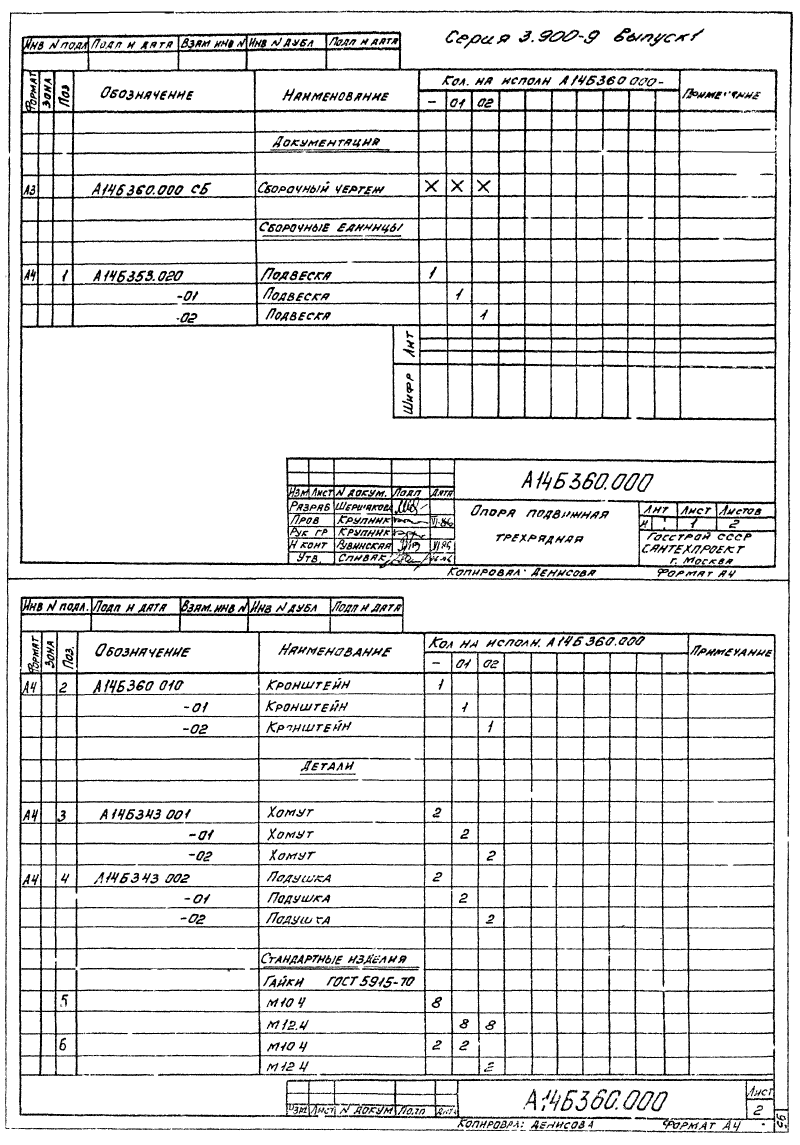 Серия 3.900-9 Выпуск 1
Инв N подл Подп и дата Взам инв N Инв N дубл Подп и дата
Формат Зона Поз Обозначение Наименование Кол. на исполн А14Б360.000- Примечание
- 01 02
Документация
А3 А14Б360.000 СБ Сборочный чертеж X X X
Сборочные единицы
А4 1 А14Б353.020 Подвеска 1
-01 Подвеска 1
-02 Подвеска 1
Лит
Шифр
А14Б360.000
Изм Лист N докум. Подп Дата
Разраб Шершакова
Пров Крупник VI.86
Рук гр Крупник
Н конт Рувинская VI.86
Утв. Спивак
Опора подвижная
трехрядная
Лит Лист Листов
И 1 2
Госстрой СССР
Сантехпроект
г. Москва
Копировал: Денисова Формат А4
Инв N подл. Подп и дата Взам. инв N Инв N дубл Подп и дата
Формат Зона Поз. Обозначение Наименование Кол на исполн. А14Б360.000 Примечание
- 01 02
А4 2 А14Б360 010 Кронштейн 1
-01 Кронштейн 1
-02 Кронштейн 1
Детали
А4 3 А14Б343 001 Хомут 2
-01 Хомут 2
-02 Хомут 2
А4 4 А14Б343 002 Подушка 2
-01 Подушка 2
-02 Подушка 2
Стандартные изделия
Гайки ГОСТ 5915-70
5 М10 4 8
М12.4 8 8
6 М10 4 2 2
М12 4 2
Изм Лист N докум Подп Дата
А14Б360.000
Лист
2
Копировал: Денисова Формат А4
56